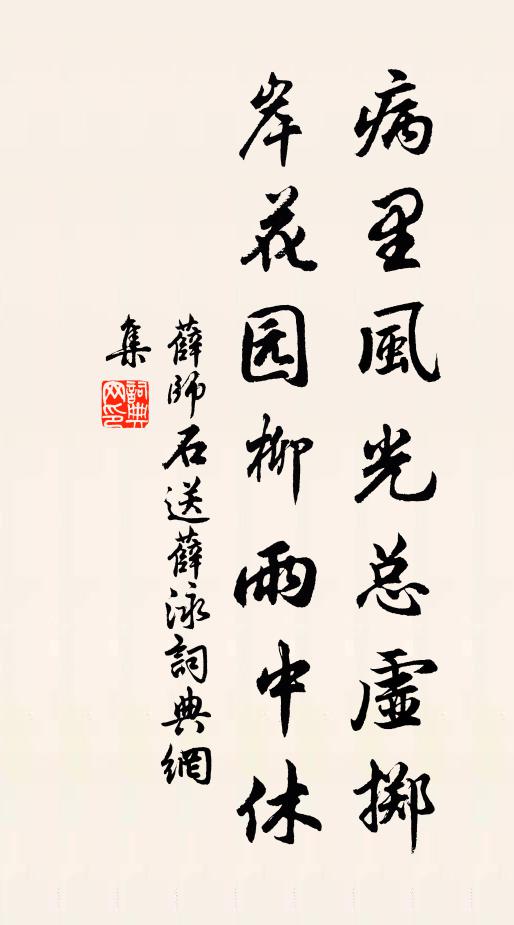 病里風光总虛掷
岸花园柳雨中休
薛師石送薛泳詞典網
集
詞典网印